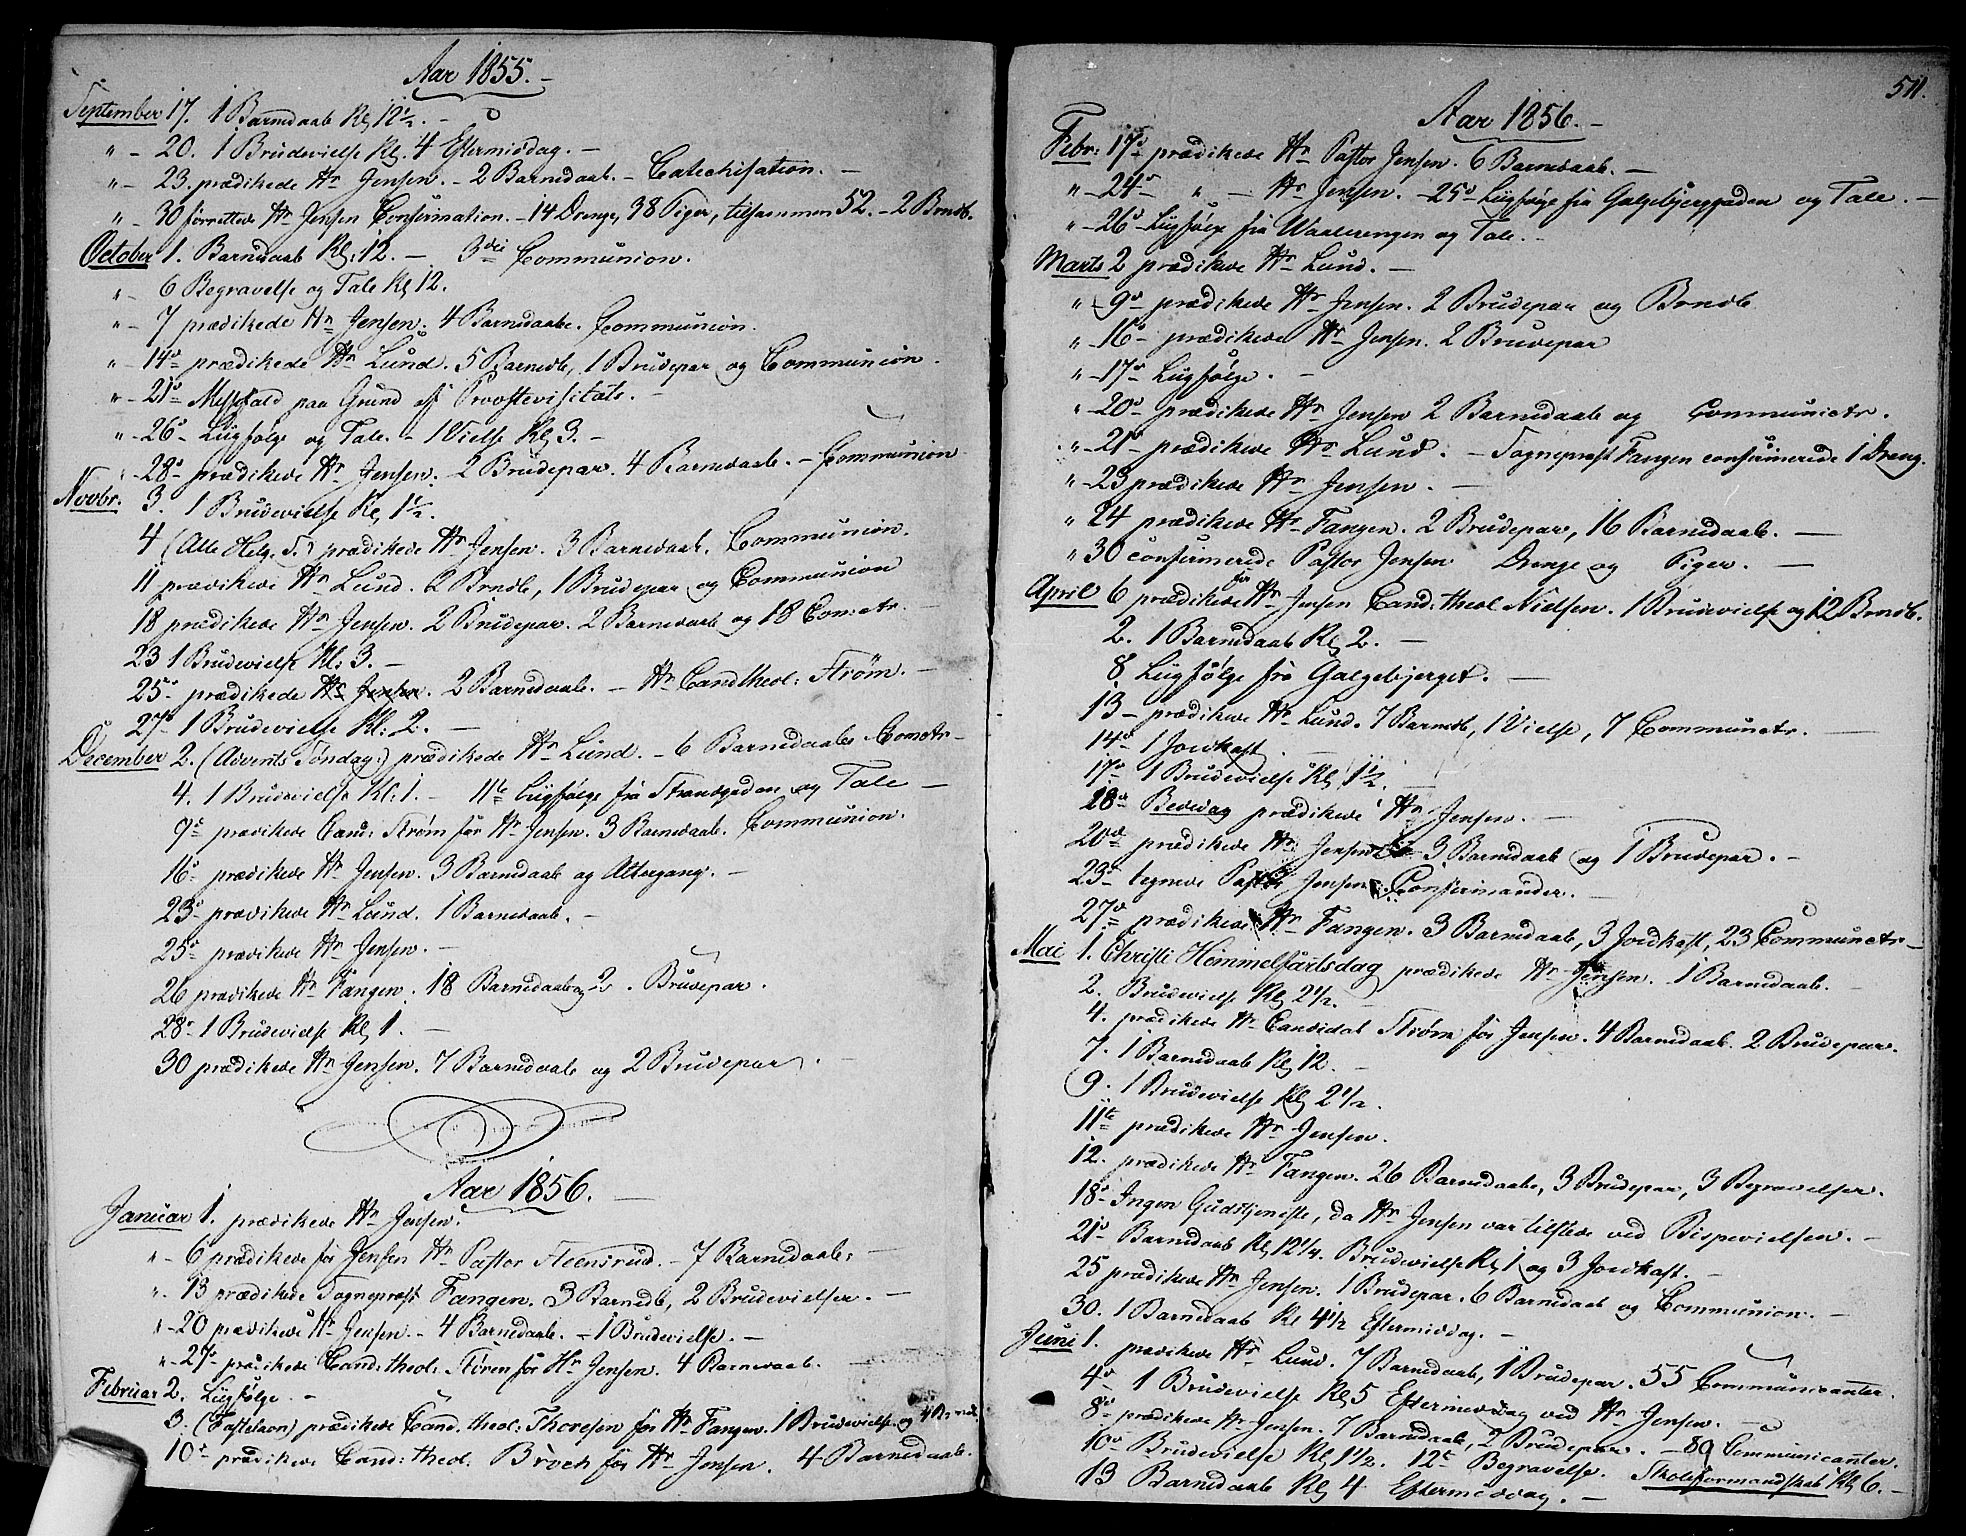 Aar 1855. -
September 17. 1 Barnedaab Kl. 12½. -
" - 20. 1 Brudevielse Kl. 4 Eftermiddag. -
" - 23. prædikede Hr Jensen. - 2 Barnedaab. - Catechisation. -
" - 30 forrettede Hr Jensen Confirmation. - 14 Drenge, 38 Piger, tilsammen 52. - 2 Brndb.
October 1. Barnedaab Kl: 12. - 3die Communion.
" - 6 Begravelse og Tale Kl 12.
" - 7 prædikede Hr Jensen. 4 Barnedaabe. Communion.
" - 14de prædikede Hr Lund. 5 Barnedb, 1 Brudepar og Communion
" - 21de Messefald paa Grund af Provstevisitats. -
" - 26de Liigfølge og Tale. - 1 Vielse Kl 3. -
28de prædikede Hr Jensen. 2 Brudepar. 4 Barnedaab. - Communion
Novbr. 3. 1 Brudevielse Kl, 1½.
4 (Alle Helg. S.) prædikede Hr Jensen. 3 Barnedaab. Communion.
11 prædikede Hr Lund. 2 Brndb, 1 Brudepar og Communion
18 prædikede Hr Jensen. 2 Brudepar. 2 Barnedaab og 18 Comctr. -
23 1 Brudevielse Kl: 3. -
25de prædikede Hr Jensen. 2 Barnedaab. - Hr Cand theol: Strøm. -
27de 1 Brudevielse Kl: 2. -
December 2. (Advents Søndag.) prædikede Hr Lund. - 6 Barnedaabe Comctr -
4. 1 Brudevielse Kl: 1. - 11te Liigfølge fra Strandgaden og Tale -
9de prædikede Cand: Strøm for Hr Jensen. 3 Barnedaab. Communion.
16de prædikede Hr Jensen. 3 Barnedaab og Altergang. -
23de prædikede Hr Lund. 1 Barnedaab. -
25de prædikede Hr Jensen. -
26 prædikede Hr Fangen. 18 Barnedaab og 2 Brudepar.
28de 1 Brudevielse Kl, 1. -
30 prædikede Hr Jensen. 7 Barnedaab og 2 Brudepar. -
Aar 1856. -
Januar 1. prædikede Hr Jensen.
" - 6 prædikede for Jensen Hr Pastor Steensrud. - 7 Barnedaab: -
" 13 prædikede Sognepræst Fangen. 3 Barnedb, 2 Brudevielser. -
" - 20 prædikede Hr Jensen. - 4 Barnedaab. - 1 Brudevielse. -
" - 27de prædikede Cand: theol. Støren for Hr Jensen. 4 Barnedaab.
Februar 2. Liigfølge. -
3. (Fastelavn) prædikede Cand. theol: Thoresen for Hr Fangen. 1 Brudevielse og 4 Brndb.
10de prædikede Cand: theol. Broch for Hr Jensen. 4 Barnedaab.
511.
Aar 1856. -
Febr: 17de prædikede Hr Pastor Jensen. 6 Barnedaab. -
" - 24de " - Hr Jensen. - 25de Liigfølge fra Galgebjerggaden og Tale. -
" - 26de Liigfølge fra Waalerengen og Tale. -
Marts 2 prædikede Hr Lund. -
" - 9de prædikede Hr Jensen. 2 Brudepar og Brndb
" - 16de prædikede Hr Jensen. 2 Brudepar
" - 17de Liigfølge. -
" - 20de prædikede Hr Jensen 2 Barnedaab og Communictr.
" - 21de prædikede Hr Lund. - Sognepræst Fangen confirmerede 1 Dreng.
" - 23 prædikede Hr Jensen. -
" 24 prædikede Hr Fangen. 2 Brudepar, 16 Barnedaab. -
" 30 confirmerede Pastor Jensen Drenge og Piger. -
April 6 prædikede for Hr Jensen Cand: theol Nielsen. 1 Brudevielse og 12 Brndb.
2. 1 Barnedaab Kl, 2. -
8. Liigfølge fra Galgebjerget. -
13 - prædikede Hr Lund. 7 Barnedb, 1 Vielse, 7 Communctr. -
14de 1 Jordkast. -
17de 1 Brudevielse Kl, 1½. -
18de Bededag prædikede Hr Jensen. -
20de prædikede Hr Jensen 3 Barnedaab og 1 Brudepar. -
23de tegnede Pastor Jensen Confirmander. -
27de prædikede Hr Fangen. 3 Barnedaab, 3 Jordkast, 23 Communctr -
Mai 1. Christi Himmelfartsdag prædikede Hr Jensen. 1 Barnedaab. -
2. Brudevielse Kl, 2½. -
4. prædikede Hr Candidat Strøm for Jensen. 4 Barnedaab. 2 Brudepar.
7. 1 Barnedaab Kl, 12. -
9. 1 Brudevielse Kl, 2½.
11te prædikede Hr Jensen.
12. prædikede Hr Fangen. 26 Barnedaab, 3 Brudepar, 3 Begravelser.
18de Ingen Gudstjeniste, da Hr Jensen var tilstede ved Bispevielsen. -
21de Barnedaab Kl, 12¼. Brudevielse Kl, 1 og 3 Jordkast. -
25 prædikede Hr Jensen. 1 Brudepar. 6 Barnedaab og Communion. -
30. 1 Barnedaab Kl 4½ Eftermiddag. -
Juni 1. prædikede Hr Lund. 7 Barnedaab, 1 Brudepar. 55 Communicanter.
4de 1 Brudevielse Kl, 5 Eftermiddag ved Hr Jensen. -
8de prædikede Hr Jensen. 7 Barnedaab, 2 Brudepar. - 89 Communicanter.
10de Brudevielse Kl, 1½. 12te Begravelse. Skoleformandskab Kl, 6. -
13 Barnedaab Kl, 4 Eftermiddag. -